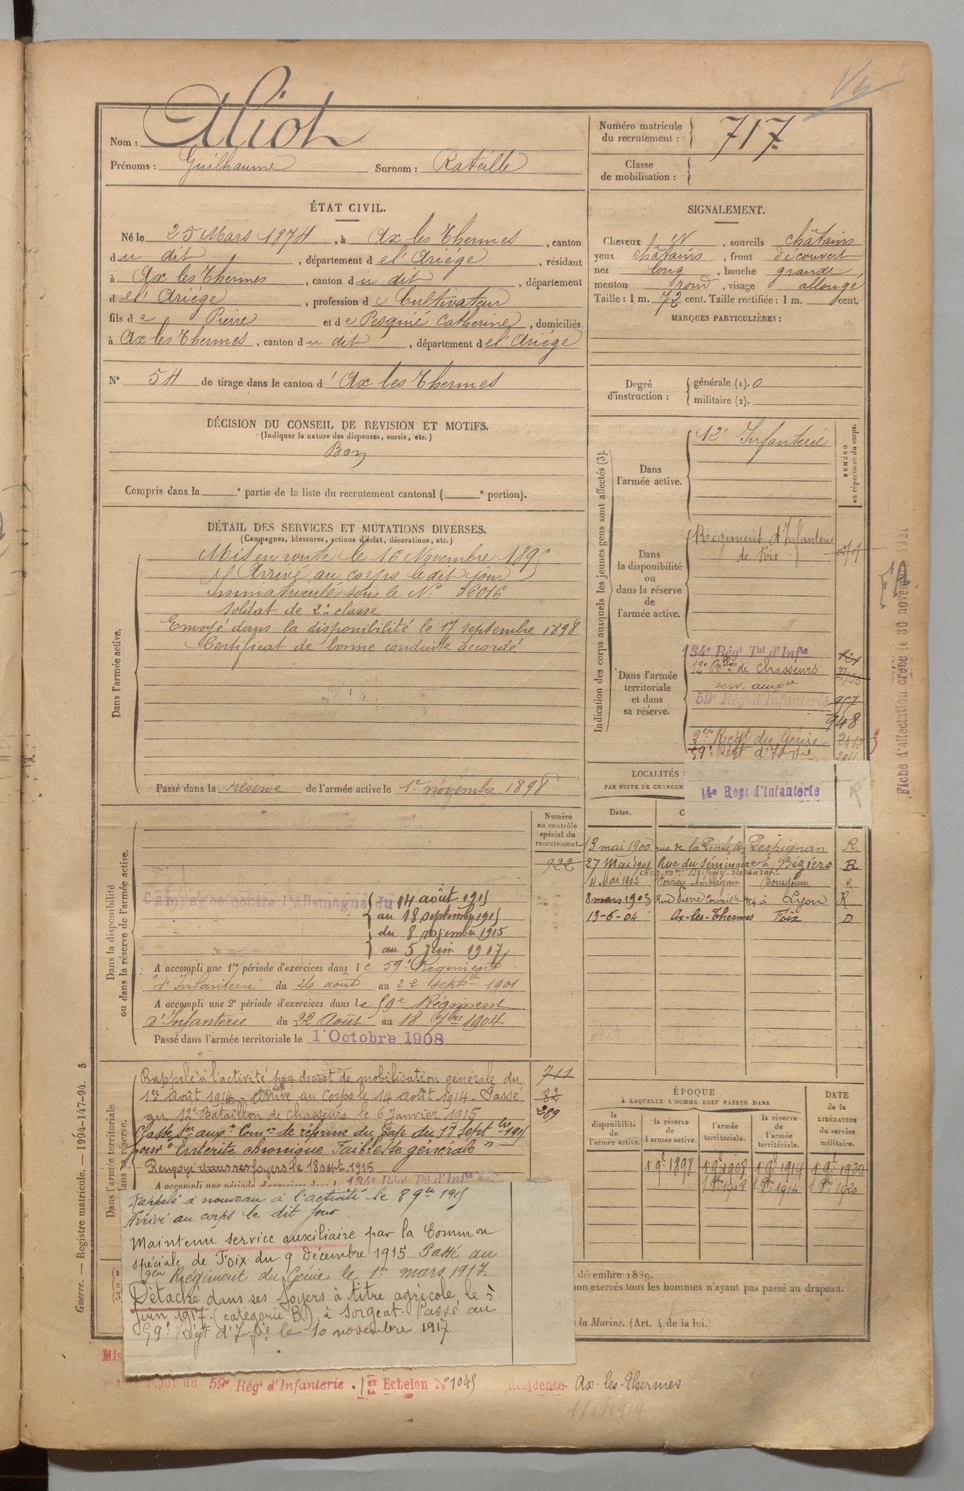 Nom : Miot
Prénoms : Guilhaume Surnom : Rateille
Numéro matricule du recrutement : 717
Classe de mobilisation :
ÉTAT CIVIL.
Né le 25 Mars 1874, à Ax les Thermes, canton
du dit, département de l'Ariège, résidant
à Ax les Thermes, canton du dit, département
de l'Ariège, profession de Cultivateur
fils de Pierre et de Pesquié Catherine, domiciliés
à Ax les Thermes, canton du dit, département de l'Ariège
N° 54 de tirage dans le canton d'Ax les Thermes
SIGNALEMENT.
Cheveux, sourcils châtains
yeux châtains, front découvert
nez long, bouche grande,
menton rond, visage allongé
Taille : 1 m. 72 cent. Taille rectifiée : 1 m. cent.
MARQUES PARTICULIÈRES :
Degré d'instruction : générale (1). 0
militaire (2).
DÉCISION DU CONSEIL DE REVISION ET MOTIFS.
(Indiquer la nature des dispenses, sursis, etc.)
Bon
Compris dans la e partie de la liste du recrutement cantonal ( e portion).
DÉTAIL DES SERVICES ET MUTATIONS DIVERSES.
(Campagnes, blessures, actions d'éclat, décorations, etc.)
Dans l'armée active.
Mis en route le 16 Novembre 1895
Arrivé au corps le dit jour
Immatriculé sous le N°
soldat de 2e classe
Envoyé dans la disponibilité le 17 septembre 1898
Certificat de bonne conduite accordé
Passé dans la réserve de l'armée active le 1er novembre 1898
Indication des corps auxquels les jeunes gens sont affectés (3).
NUMÉRO au répertoire du corps.
Dans l'armée active.
12e Infanterie
Dans la disponibilité ou dans la réserve de l'armée active.
Régiment d'Infanterie
de Foix
Dans l'armée territoriale et dans sa réserve.
134e Régt Tal d'Infie
12e Bon de Chasseurs
serv. auxre
59e Régt d'Infanterie 957
948
2e Regt du Génie
59e Regt d'Inf
14e Regt d'Infanterie R
Fiche d'affectation créée le 30 novem 1931
LOCALITÉS
PAR SUITE DE CHANGEM
Dates.
13 mai 1900 rue de la Perpignan R
27 Mai 1901 Rue du Séminaire à Béziers R
11 Mai 1902 R
8 mars 1903 Rue Pierre à Lyon R
13-6-04 Ax-les-Thermes Foix D
Numéro au contrôle spécial du recrutement
922
Dans la disponibilité ou dans la réserve de l'armée active.
Campagne contre l'Allemagne du 14 août 1914
au 18 septembre 1915
du 8 novembre 1915
au 5 juin 1917
A accompli une 1re période d'exercices dans le 59e Régiment
d'Infanterie du 26 août au 22 Septbre 1901
A accompli une 2e période d'exercices dans le 59e Régiment
d'Infanterie du 22 Août au 18 7bre 1904.
Passé dans l'armée territoriale le 1 Octobre 1908
Dans l'armée territoriale
Rappelé à l'activité par décret de mobilisation générale du
1er Août 1914. Arrivé au Corps le 14 août 1914. Passé
au 12e Bataillon de chasseurs le 6 janvier 1915
711
82
289
Classé Sce auxre Comon de réforme de Gap du 17 Septbre 1915
pour "Entérite chronique Faiblesse générale"
Renvoyé dans ses foyers le 18 sept. 1915
A accompli une période d'exercices dans le 134e Régt Tal d'Infie
Rappelé à nouveau à l'activité le 8 9bre 1915
Arrivé au corps le dit jour
Maintenu service auxiliaire par la Common
spéciale de Foix du 9 Décembre 1915. Passé au
Régiment du Génie le 1er mars 1917.
Détaché dans ses foyers à titre agricole, le 5
juin 1917 (catégorie B) à Sorgeat. Passé au
59e Régt d'Inf le 10 novembre 1917
ÉPOQUE
À LAQUELLE L'HOMME DOIT PASSER DANS
la disponibilité de l'armée active.
la réserve de l'armée active.
l'armée territoriale.
la réserve de l'armée territoriale.
DATE de la LIBÉRATION du service militaire.
décembre 1889.
non exercés tous les hommes n'ayant pas passé au drapeau.
la Marine. (Art. 4 de la loi.)
Guerre. — Registre matricule. — 1994-147-94. 3
59e Régt d'Infanterie. 1er Echelon N° 1045 Résidence Ax-les-Thermes